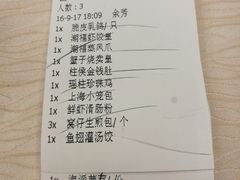 人数：3
16-9-17 18:09 余芳
1x 脆皮乳鸽/只
1x 潮福虾饺皇
1x 潮福蒸凤爪
1x 蟹子烧卖皇
1x 柱侯金钱肚
1x 瑶柱珍珠鸡
1x 上海小笼包
1x 鲜虾滑肠粉
3x 窝仔生煎包/个
1x 鱼翅灌汤饺
1x